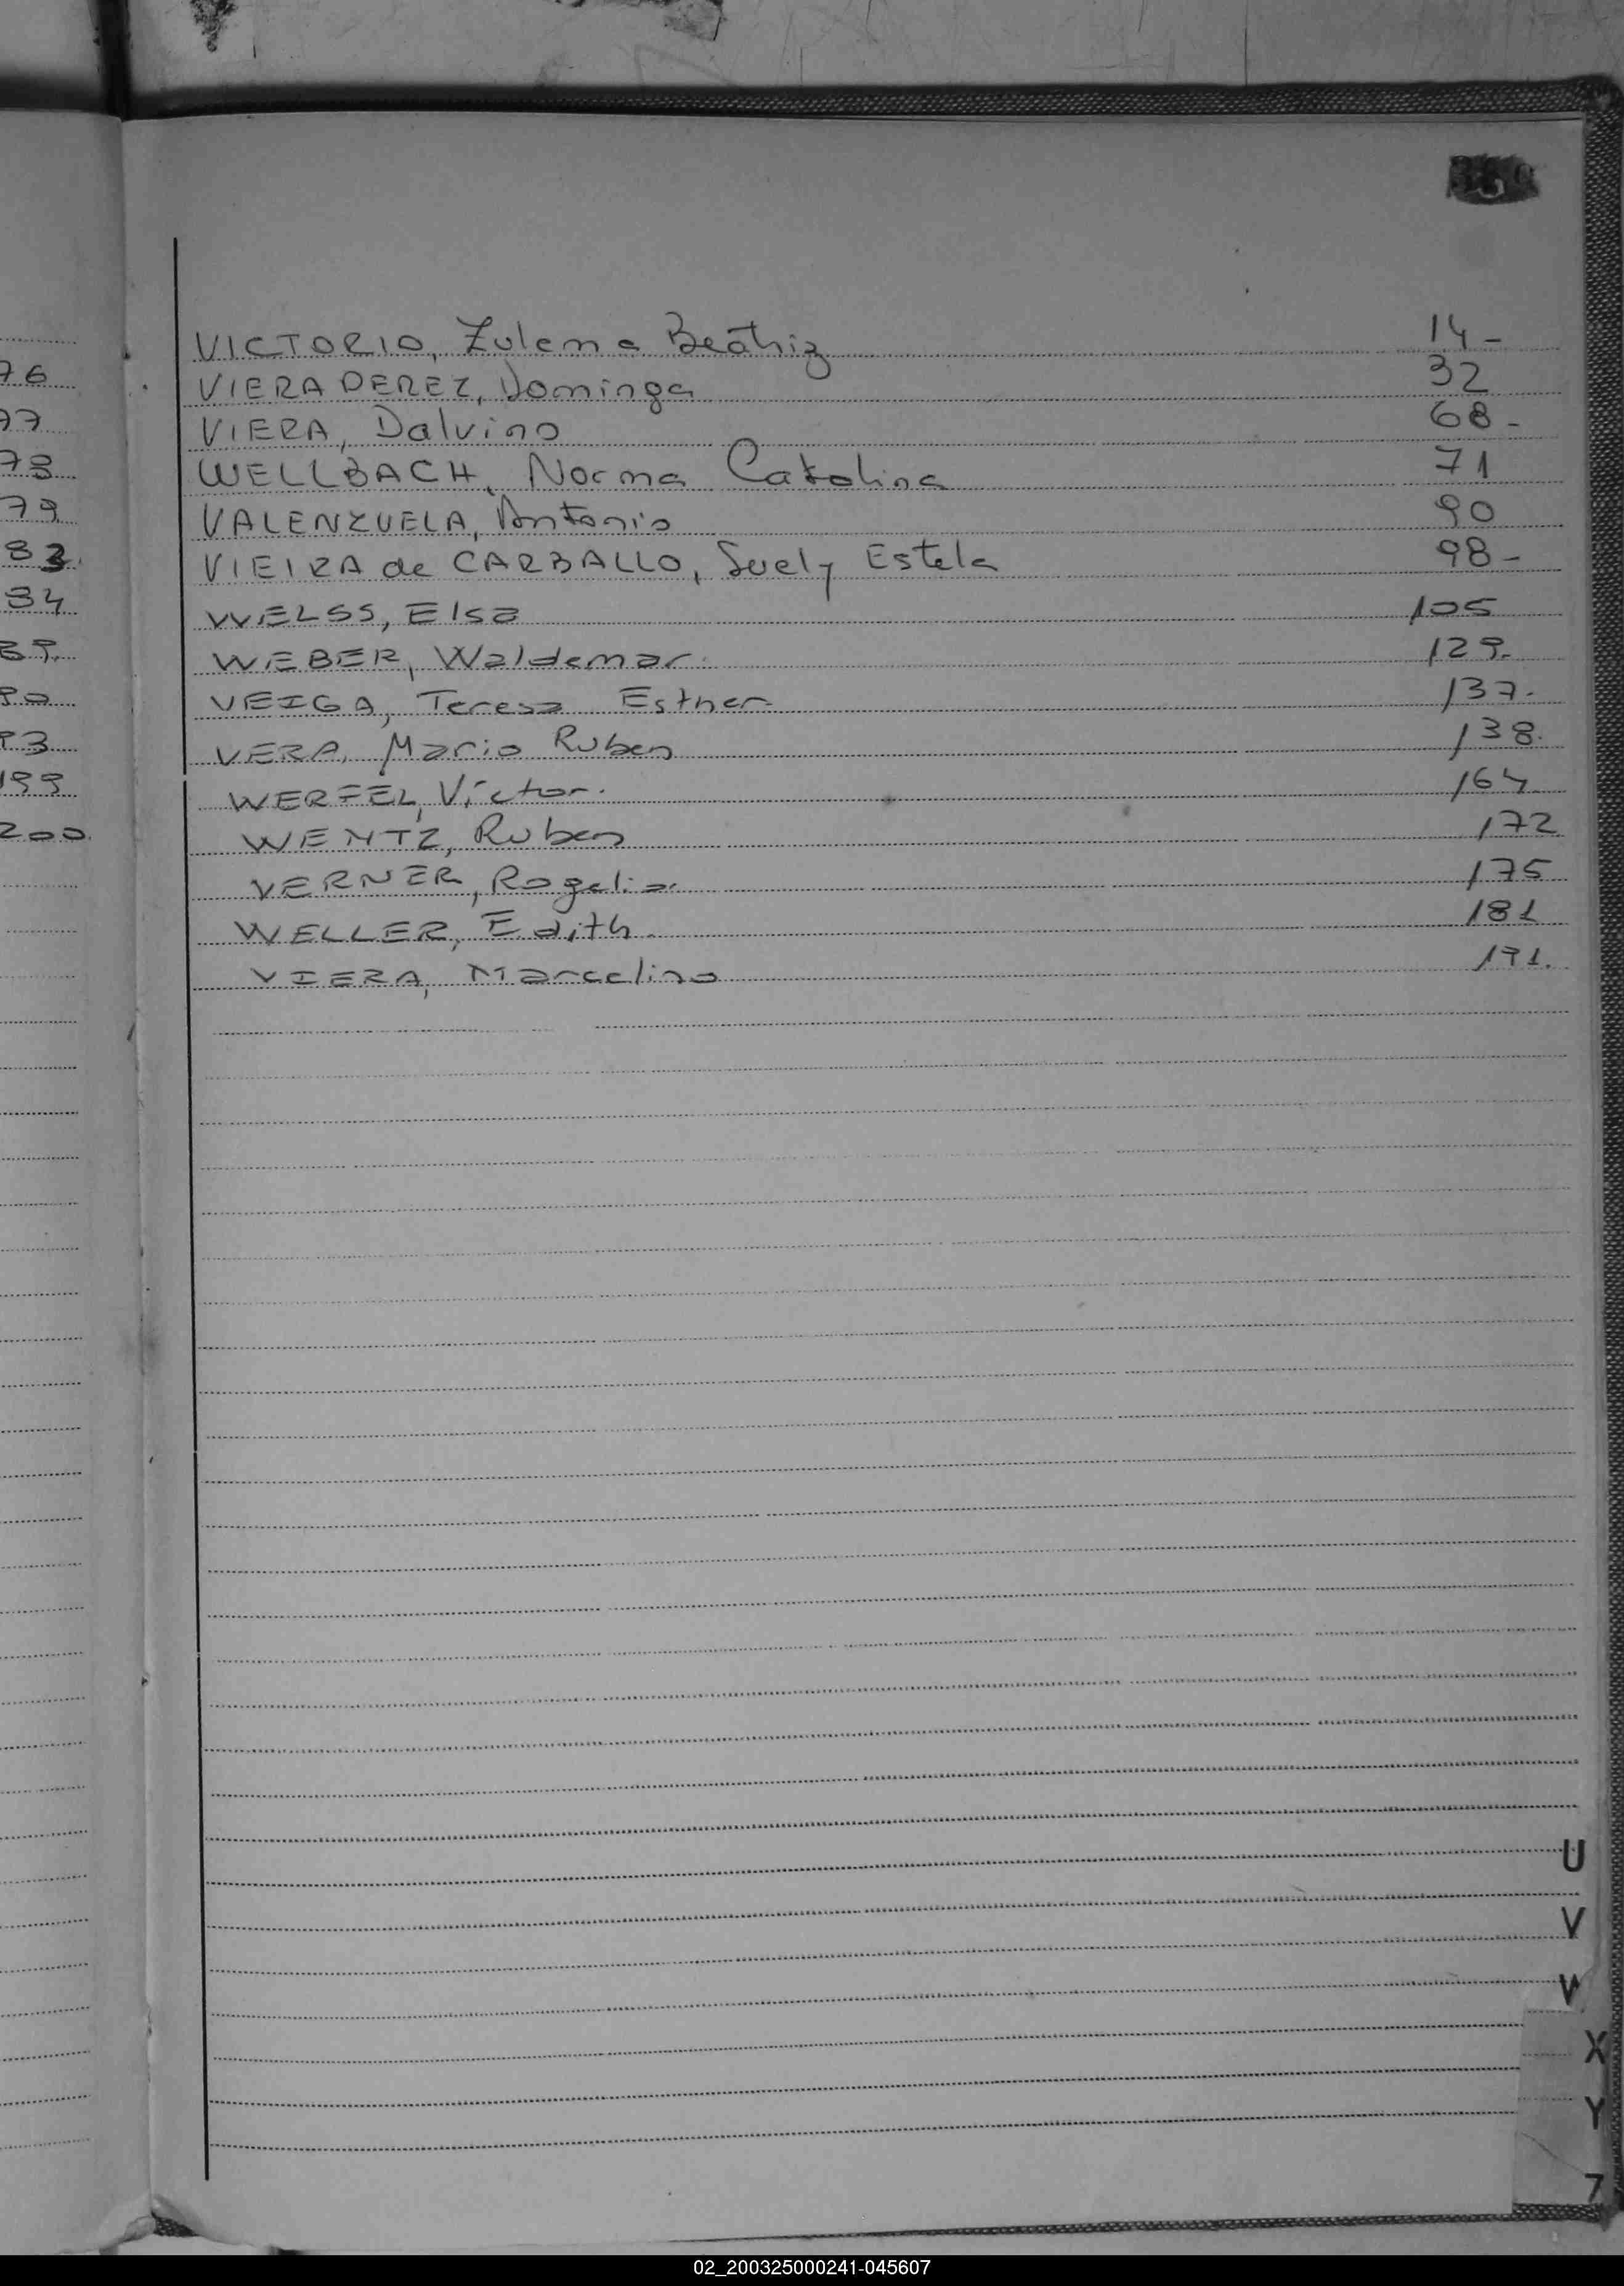 76
77
78
79
83.
84
89.
90
93
199
200.
VICTORIO, Zulema Beatriz 14-
VIERA PEREZ, Dominga 32
VIERA, Dalvino 68-
WELLBACH, Norma Catalina 71
VALENZUELA, Antonio 90
VIEIRA de CARBALLO, Suely Estela 98-
WELSS, Elsa 105
WEBER, Waldemar. 129.
VEIGA, Teresa Esther 137.
VERA, Mario Ruben 138.
WERFEL, Víctor. 164
WENTZ, Ruben 172
VERNER, Rogelio. 175
WELLER, Edith. 181
VIERA, Marcelino 191.
U
V
W
X
Y
Z
02_200325000241-045607